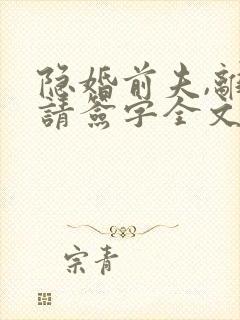 隐婚前夫,離
請簽字全文
宗青